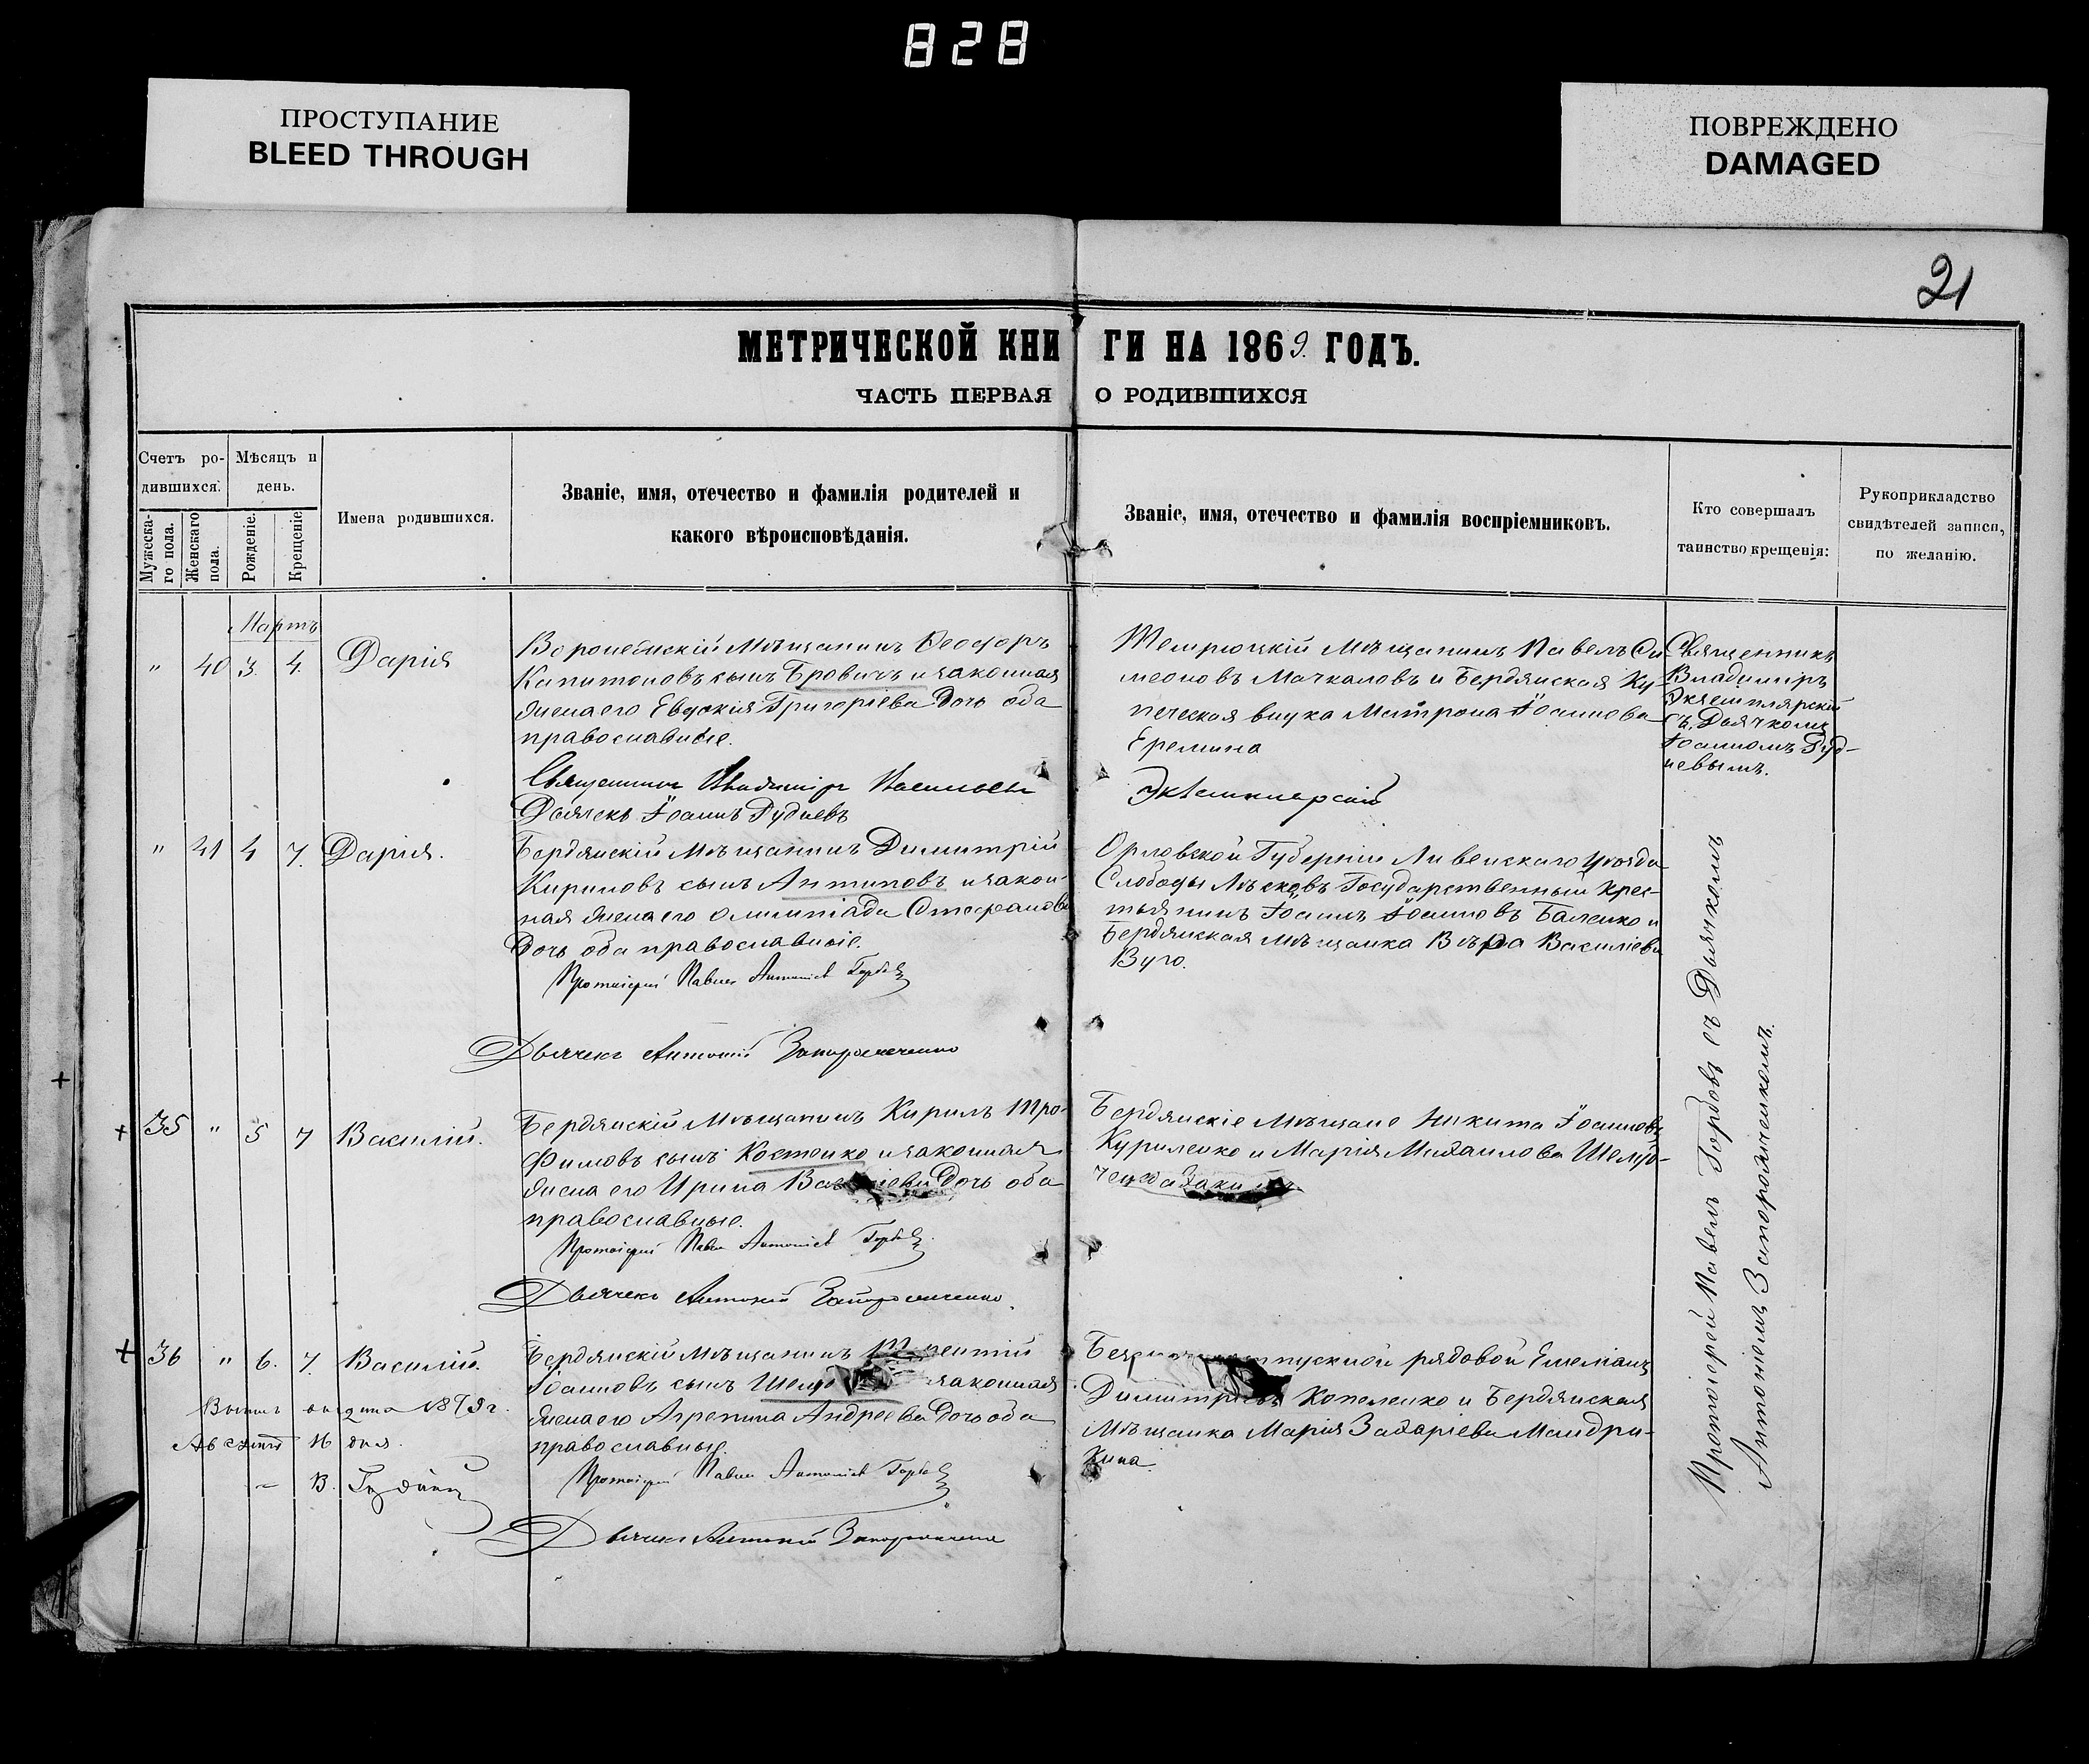 828
ПРОСТУПАНИЕ
BLEED THROUGH
ПОВРЕЖДЕНО
DAMAGED
21
МЕТРИЧЕСКОЙ КНИГИ НА 1869. ГОДЪ.
ЧАСТЬ ПЕРВАЯ О РОДИВШИХСЯ
Счетъ ро-
дившихся.
Мужеска-
го пола.
Женскаго
пола.
Мѣсяцъ и
день.
Рожденіе.
Крещеніе
Имена родившихся.
Званіе, имя, отечество и фамилія родителей и
какого вѣроисповѣданія.
Званіе, имя, отечество и фамилія воспріемниковъ.
Кто совершалъ
таинство крещенія:
Рукоприкладство
свидѣтелей записи,
по желанію.
Мартъ
" 40 3. 4. Дарія
Воронежскій Мѣщанинъ Ѳеодоръ
Капитоновъ сынъ Бровичъ и законная
жена его Евдокія Григоріева Дочь оба
православные.
Священникъ Владиміръ
Дьячекъ Іоаннъ Гудиевъ
Темрюцкій Мѣщанинъ Павелъ Си-
меоновъ Мачкаловъ и Бердянская Ку-
печеская внука Матрона Іоаннова
Еремина
Экземплярскій
Священникъ
Владиміръ
Экземплярскій
съ Дьячкомъ
Іоанномъ Гуд-
иевымъ.
" 41 4 7. Дарія.
Бердянскій Мѣщанинъ Димитрій
Кириловъ сынъ Антиповъ и закон-
ная жена его Олимпіада Стефанова
Дочь оба православные.
Протоіерей Павелъ Антоніевъ Горбовъ
Дьячекъ Антоній Запорожченко
Орловской Губерніи Ливенскаго Уѣзда
Слободы Государственный Крес-
тьянинъ Іоаннъ Іоанновъ Баленко и
Бердянская Мѣщанка Вѣра Василіева
Вуго.
+ 35 " 5 7 Василій.
Бердянскій Мѣщанинъ Кирилъ Тро-
фимовъ сынъ Костенко и законная
жена его Ирина Дочь оба
православные.
Протоіерей Павелъ Антоніевъ Горбовъ
Дьячекъ Антоній Запорожченко
Бердянскіе Мѣщане Никита Іоанновъ
Куриленко и Марія Михаилова Шелуд-
+ 36 " 6. 7. Василій.
Бердянскій Мѣщанинъ
Іоанновъ сынъ законная
жена его Агрепина Андреева Дочь оба
православные.
Протоіерей Павелъ Антоніевъ Горбовъ
Дьячекъ Антоній Запорожченко
рядовой Емеліанъ
Димитріевъ Копеленко и Бердянская
Мѣщанка Марія Захаріева Мандри-
кина.
Августа 16 дня.
Протоіерей Павелъ Горбовъ съ Дьячкомъ
Антоніемъ Запорожченкомъ.